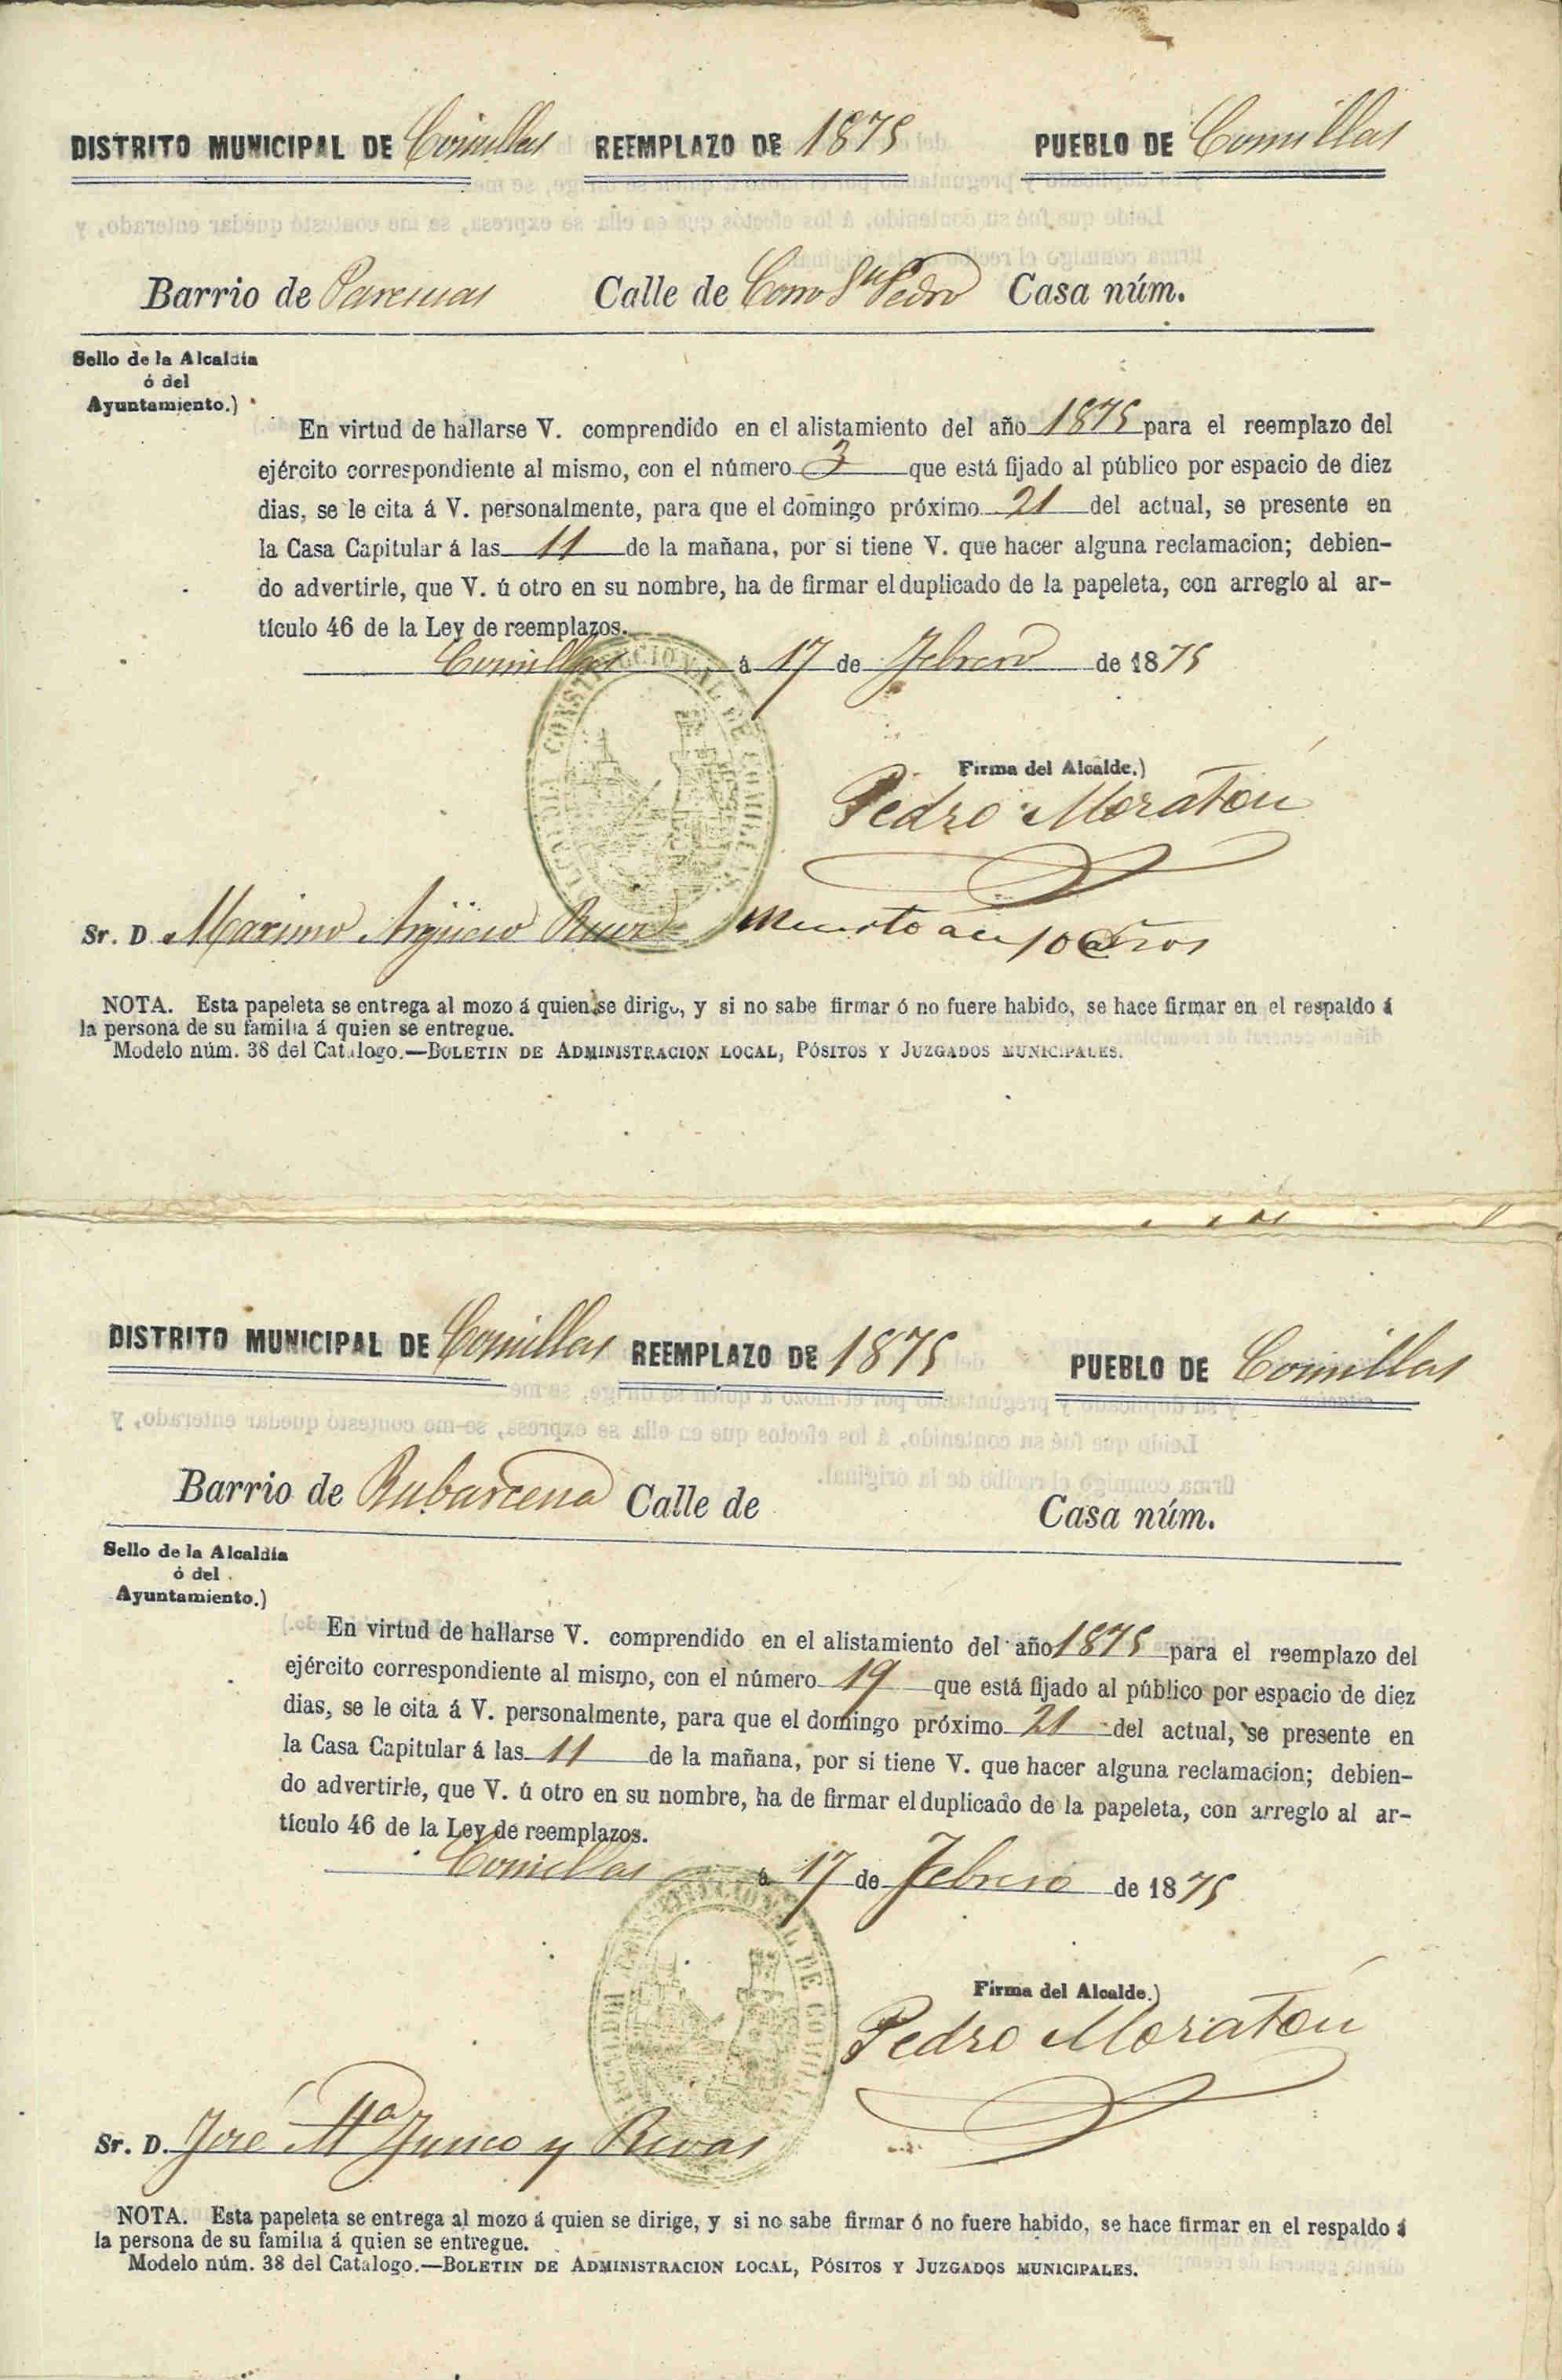 DISTRITO MUNICIPAL DE Comillas REEMPLAZO DE 1875 PUEBLO DE Comillas
Barrio de Calle de Corro Sn Pedro Casa núm.
Sello de la Alcaldía
ó del
Ayuntamiento.)
En virtud de hallarse V. comprendido en el alistamiento del año 1875 para el reemplazo del
ejército correspondiente al mismo, con el número 3 que está fijado al público por espacio de diez
dias, se le cita á V. personalmente, para que el domingo próximo 21 del actual, se presente en
la Casa Capitular á las 11 de la mañana, por si tiene V. que hacer alguna reclamacion; debien-
do advertirle, que V. ú otro en su nombre, ha de firmar el duplicado de la papeleta, con arreglo al ar-
tículo 46 de la Ley de reemplazos.
Comillas á 17 de Febrero de 1875
Firma del Alcalde.)
Pedro Moratón
Sr. D. Maximo Argüeso muerto 10 años
NOTA. Esta papeleta se entrega al mozo á quien se dirige, y si no sabe firmar ó no fuere habido, se hace firmar en el respaldo á
la persona de su familia á quien se entregue.
Modelo núm. 38 del Catalogo.—BOLETIN DE ADMINISTRACION LOCAL, PÓSITOS Y JUZGADOS MUNICIPALES.
DISTRITO MUNICIPAL DE Comillas REEMPLAZO DE 1875 PUEBLO DE Comillas
Barrio de Rubarcena Calle de Casa núm.
Sello de la Alcaldía
ó del
Ayuntamiento.)
En virtud de hallarse V. comprendido en el alistamiento del año 1875 para el reemplazo del
ejército correspondiente al mismo, con el número 19 que está fijado al público por espacio de diez
dias, se le cita á V. personalmente, para que el domingo próximo 21 del actual, se presente en
la Casa Capitular á las 11 de la mañana, por si tiene V. que hacer alguna reclamacion; debien-
do advertirle, que V. ú otro en su nombre, ha de firmar el duplicado de la papeleta, con arreglo al ar-
tículo 46 de la Ley de reemplazos.
Comillas á 17 de Febrero de 1875
Firma del Alcalde.)
Pedro Moratón
Sr. D. José Ma Junco y Rivas
NOTA. Esta papeleta se entrega al mozo á quien se dirige, y si no sabe firmar ó no fuere habido, se hace firmar en el respaldo á
la persona de su familia á quien se entregue.
Modelo núm. 38 del Catalogo.—BOLETIN DE ADMINISTRACION LOCAL, PÓSITOS Y JUZGADOS MUNICIPALES.